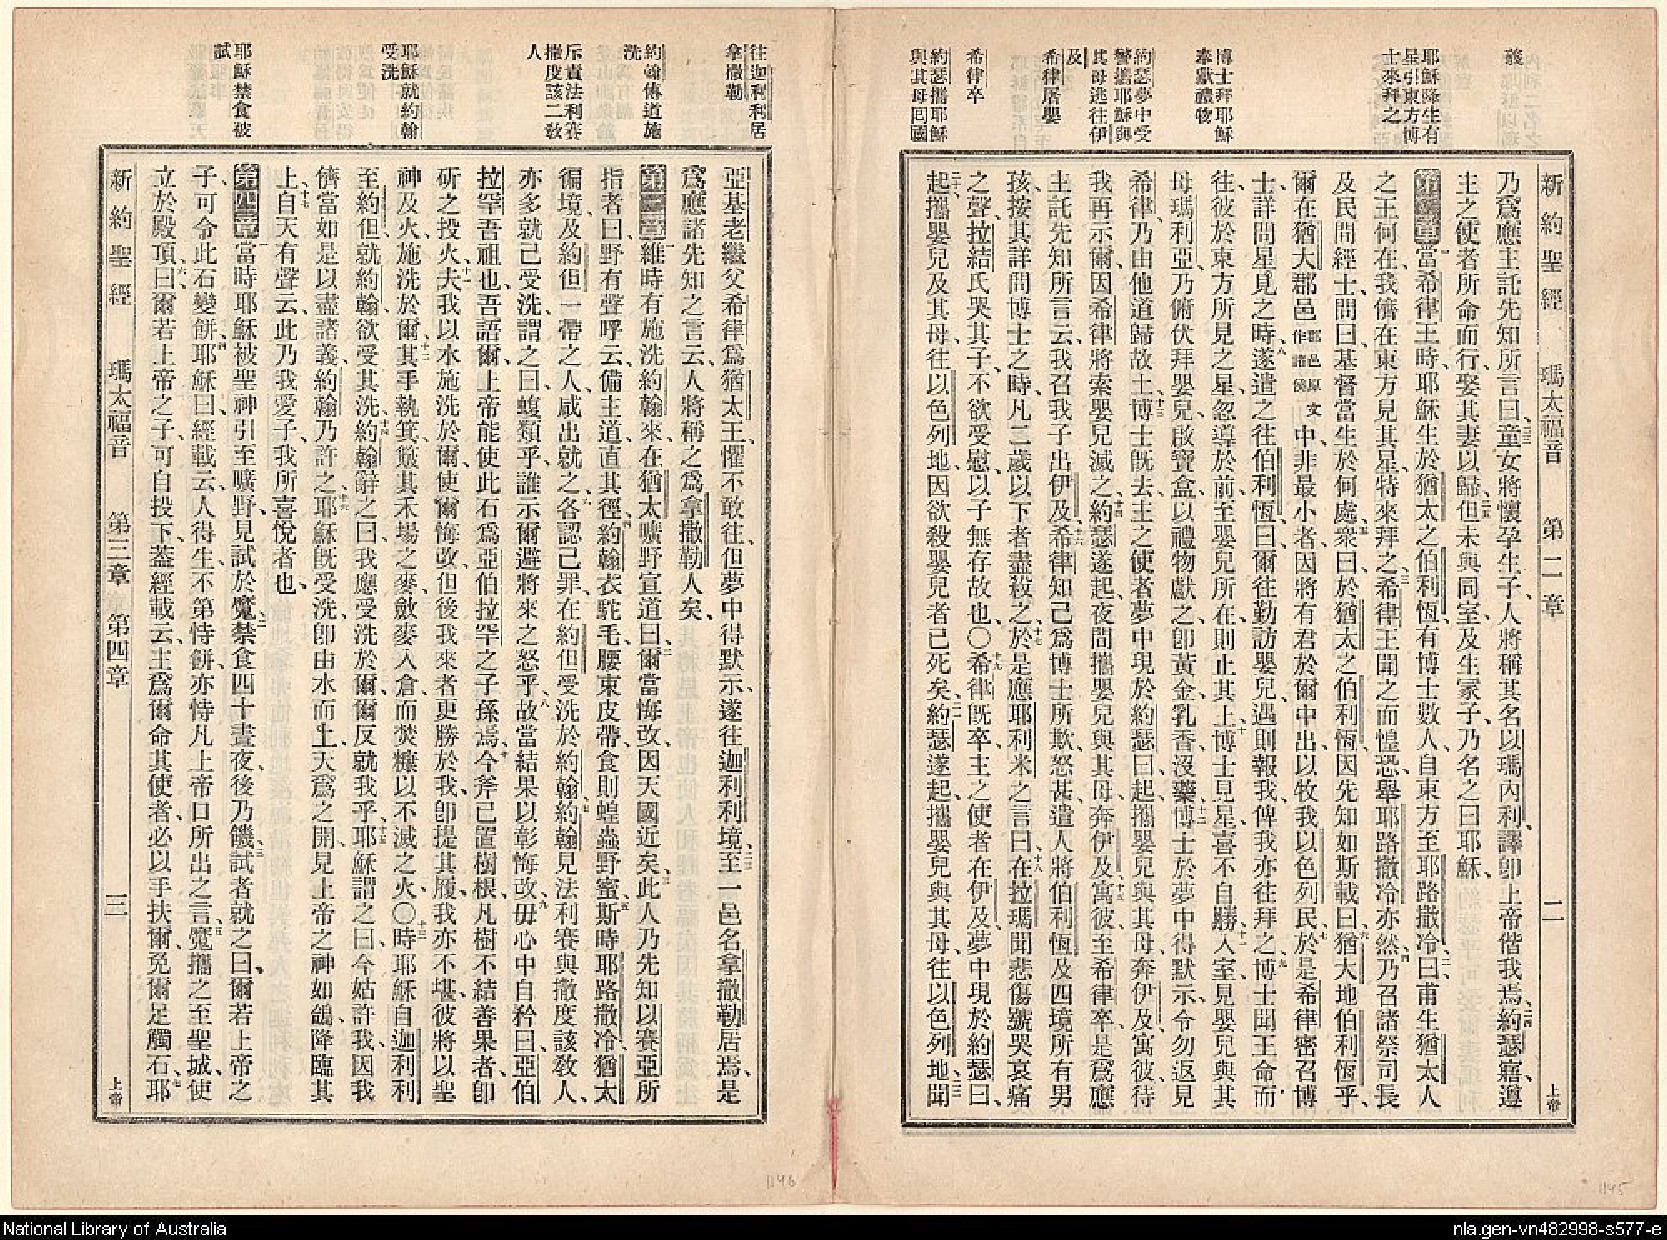 新約聖經 瑪太福音 第二章 二 上帝
耶穌降生有
星引東方博
士來拜之
博士拜耶穌
奉獻禮物
約瑟夢中受
警攜耶穌與
其母逃往伊
及
希律屠嬰
希律卒
約瑟攜耶穌
與其母回國
乃爲應主託先知所言曰童女將懷孕生子人將稱其名以瑪內利譯卽上帝偕我焉約瑟寤遵
主之使者所命而行娶其妻以歸但未與同室及生冢子乃名之曰耶穌
第二章當希律王時耶穌生於猶太之伯利恆有博士數人自東方至耶路撒冷曰甫生猶太人
之王何在我儕在東方見其星特來拜之希律王聞之而惶恐舉耶路撒冷亦然乃召諸祭司長
及民間經士問曰基督當生於何處衆曰於猶太之伯利恆因先知如斯載曰猶大地伯利恆乎
爾在猶大郡邑郡邑原文作諸侯中非最小者因將有君於爾中出以牧我以色列民於是希律密召博
士詳問星見之時遂遣之往伯利恆曰爾往勤訪嬰兒遇則報我俾我亦往拜之博士聞王命而
往彼於東方所見之星忽導於前至嬰兒所在則止其上博士見星喜不自勝入室見嬰兒與其
母瑪利亞乃俯伏拜嬰兒啟寶盒以禮物獻之卽黃金乳香沒藥博士於夢中得默示令勿返見
希律乃由他道歸故土博士旣去主之使者夢中現於約瑟曰起攜嬰兒與其母奔伊及寓彼待
我再示爾因希律將索嬰兒滅之約瑟遂起夜間攜嬰兒與其母奔伊及寓彼至希律卒是爲應
主託先知所言云我召我子出伊及希律知己爲博士所欺怒甚遣人將伯利恆及四境所有男
孩按其詳問博士之時凡二歲以下者盡殺之於是應耶利米之言曰在拉瑪聞悲傷號哭哀痛
之聲拉結氏哭其子不欲受慰以子無存故也〇希律旣卒主之使者在伊及夢中現於約瑟曰
起攜嬰兒及其母往以色列地因欲殺嬰兒者已死矣約瑟遂起攜嬰兒與其母往以色列地聞
往迦利利居
拿撒勒
約翰傳道施
洗
斥責法利賽
撒度該二敎
人
耶穌就約翰
受洗
耶穌禁食被
試
亞基老繼父希律爲猶太王懼不敢往但夢中得默示遂往迦利利境至一邑名拿撒勒居焉是
爲應諸先知之言云人將稱之爲拿撒勒人矣
第三章維時有施洗約翰來在猶太曠野宣道曰爾當悔改因天國近矣此人乃先知以賽亞所
指者曰野有聲呼云備主道直其徑約翰衣駝毛腰束皮帶食則蝗蟲野蜜斯時耶路撒冷猶太
徧境及約但一帶之人咸出就之各認己罪在約但受洗於約翰約翰見法利賽與撒度該敎人
亦多就己受洗謂之曰蝮類乎誰示爾避將來之怒乎故當結果以彰悔改毋心中自矜曰亞伯
拉罕吾祖也吾語爾上帝能使此石爲亞伯拉罕之子孫焉今斧已置樹根凡樹不結善果者卽
斫之投火夫我以水施洗於爾使爾悔改但後我來者更勝於我卽提其履我亦不堪彼將以聖
神及火施洗於爾其手執箕簸其禾場之麥斂麥入倉而燬糠以不滅之火〇時耶穌自迦利利
至約但就約翰欲受其洗約翰辭之曰我應受洗於爾爾反就我乎耶穌謂之曰今姑許我因我
儕當如是以盡諸義約翰乃許之耶穌旣受洗卽由水而上天爲之開見上帝之神如鴿降臨其
上自天有聲云此乃我愛子我所喜悅者也
第四章當時耶穌被聖神引至曠野見試於魔禁食四十晝夜後乃饑試者就之曰爾若上帝之
子可令此石變餅耶穌曰經載云人得生不第恃餅亦恃凡上帝口所出之言魔攜之至聖城使
立於殿頂曰爾若上帝之子可自投下蓋經載云主爲爾命其使者必以手扶爾免爾足觸石耶
新約聖經 瑪太福音 第三章 第四章 三 上帝
1146
1145
National Library of Australia
nla.gen-vn482998-s577-e